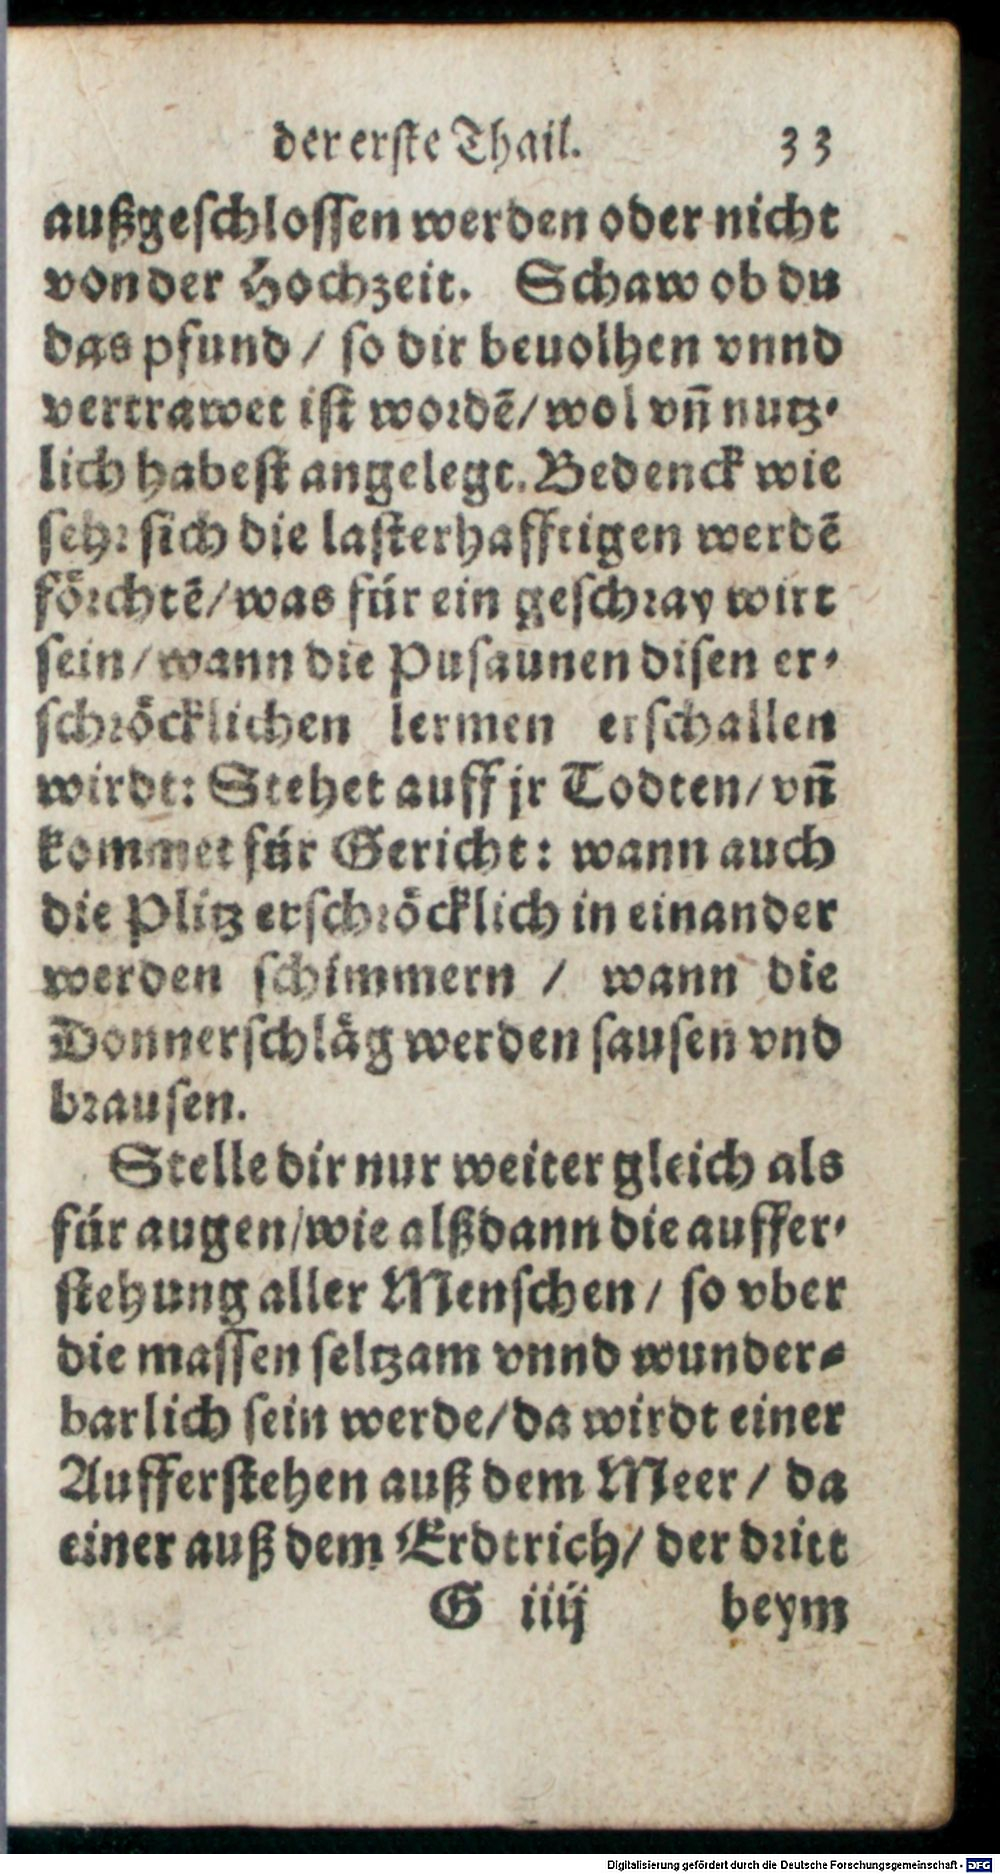 der erſte Thail. 33
außgeſchloſſen werden oder nicht
von der Hochzeit. Schaw ob du
das pfund / ſo dir beuolhen vnnd
vertrawet iſt wordē/ wol vn̄ nutz-
lich habeſt angelegt. Bedenck wie
ſehr ſich die laſterhafftigen werdē
förchtē/ was für ein geſchray wirt
ſein/ wann die Puſaunen diſen er-
ſchröcklichen lermen erſchallen
wirdt: Stehet auff jr Todten/ vn̄
kommet für Gericht: wann auch
die Plitz erſchröcklich in einander
werden ſchimmern / wann die
Donnerſchläg werden ſauſen vnd
brauſen.
Stelle dir nur weiter gleich als
für augen/ wie alßdann die auffer-
ſtehung aller Menſchen/ ſo vber
die maſſen ſeltzam vnnd wunder-
barlich ſein werde/ da wirdt einer
Aufferſtehen auß dem Meer / da
einer auß dem Erdtrich/ der dritt
G iiij beym
Digitalisierung gefördert durch die Deutsche Forschungsgemeinschaft - DFG